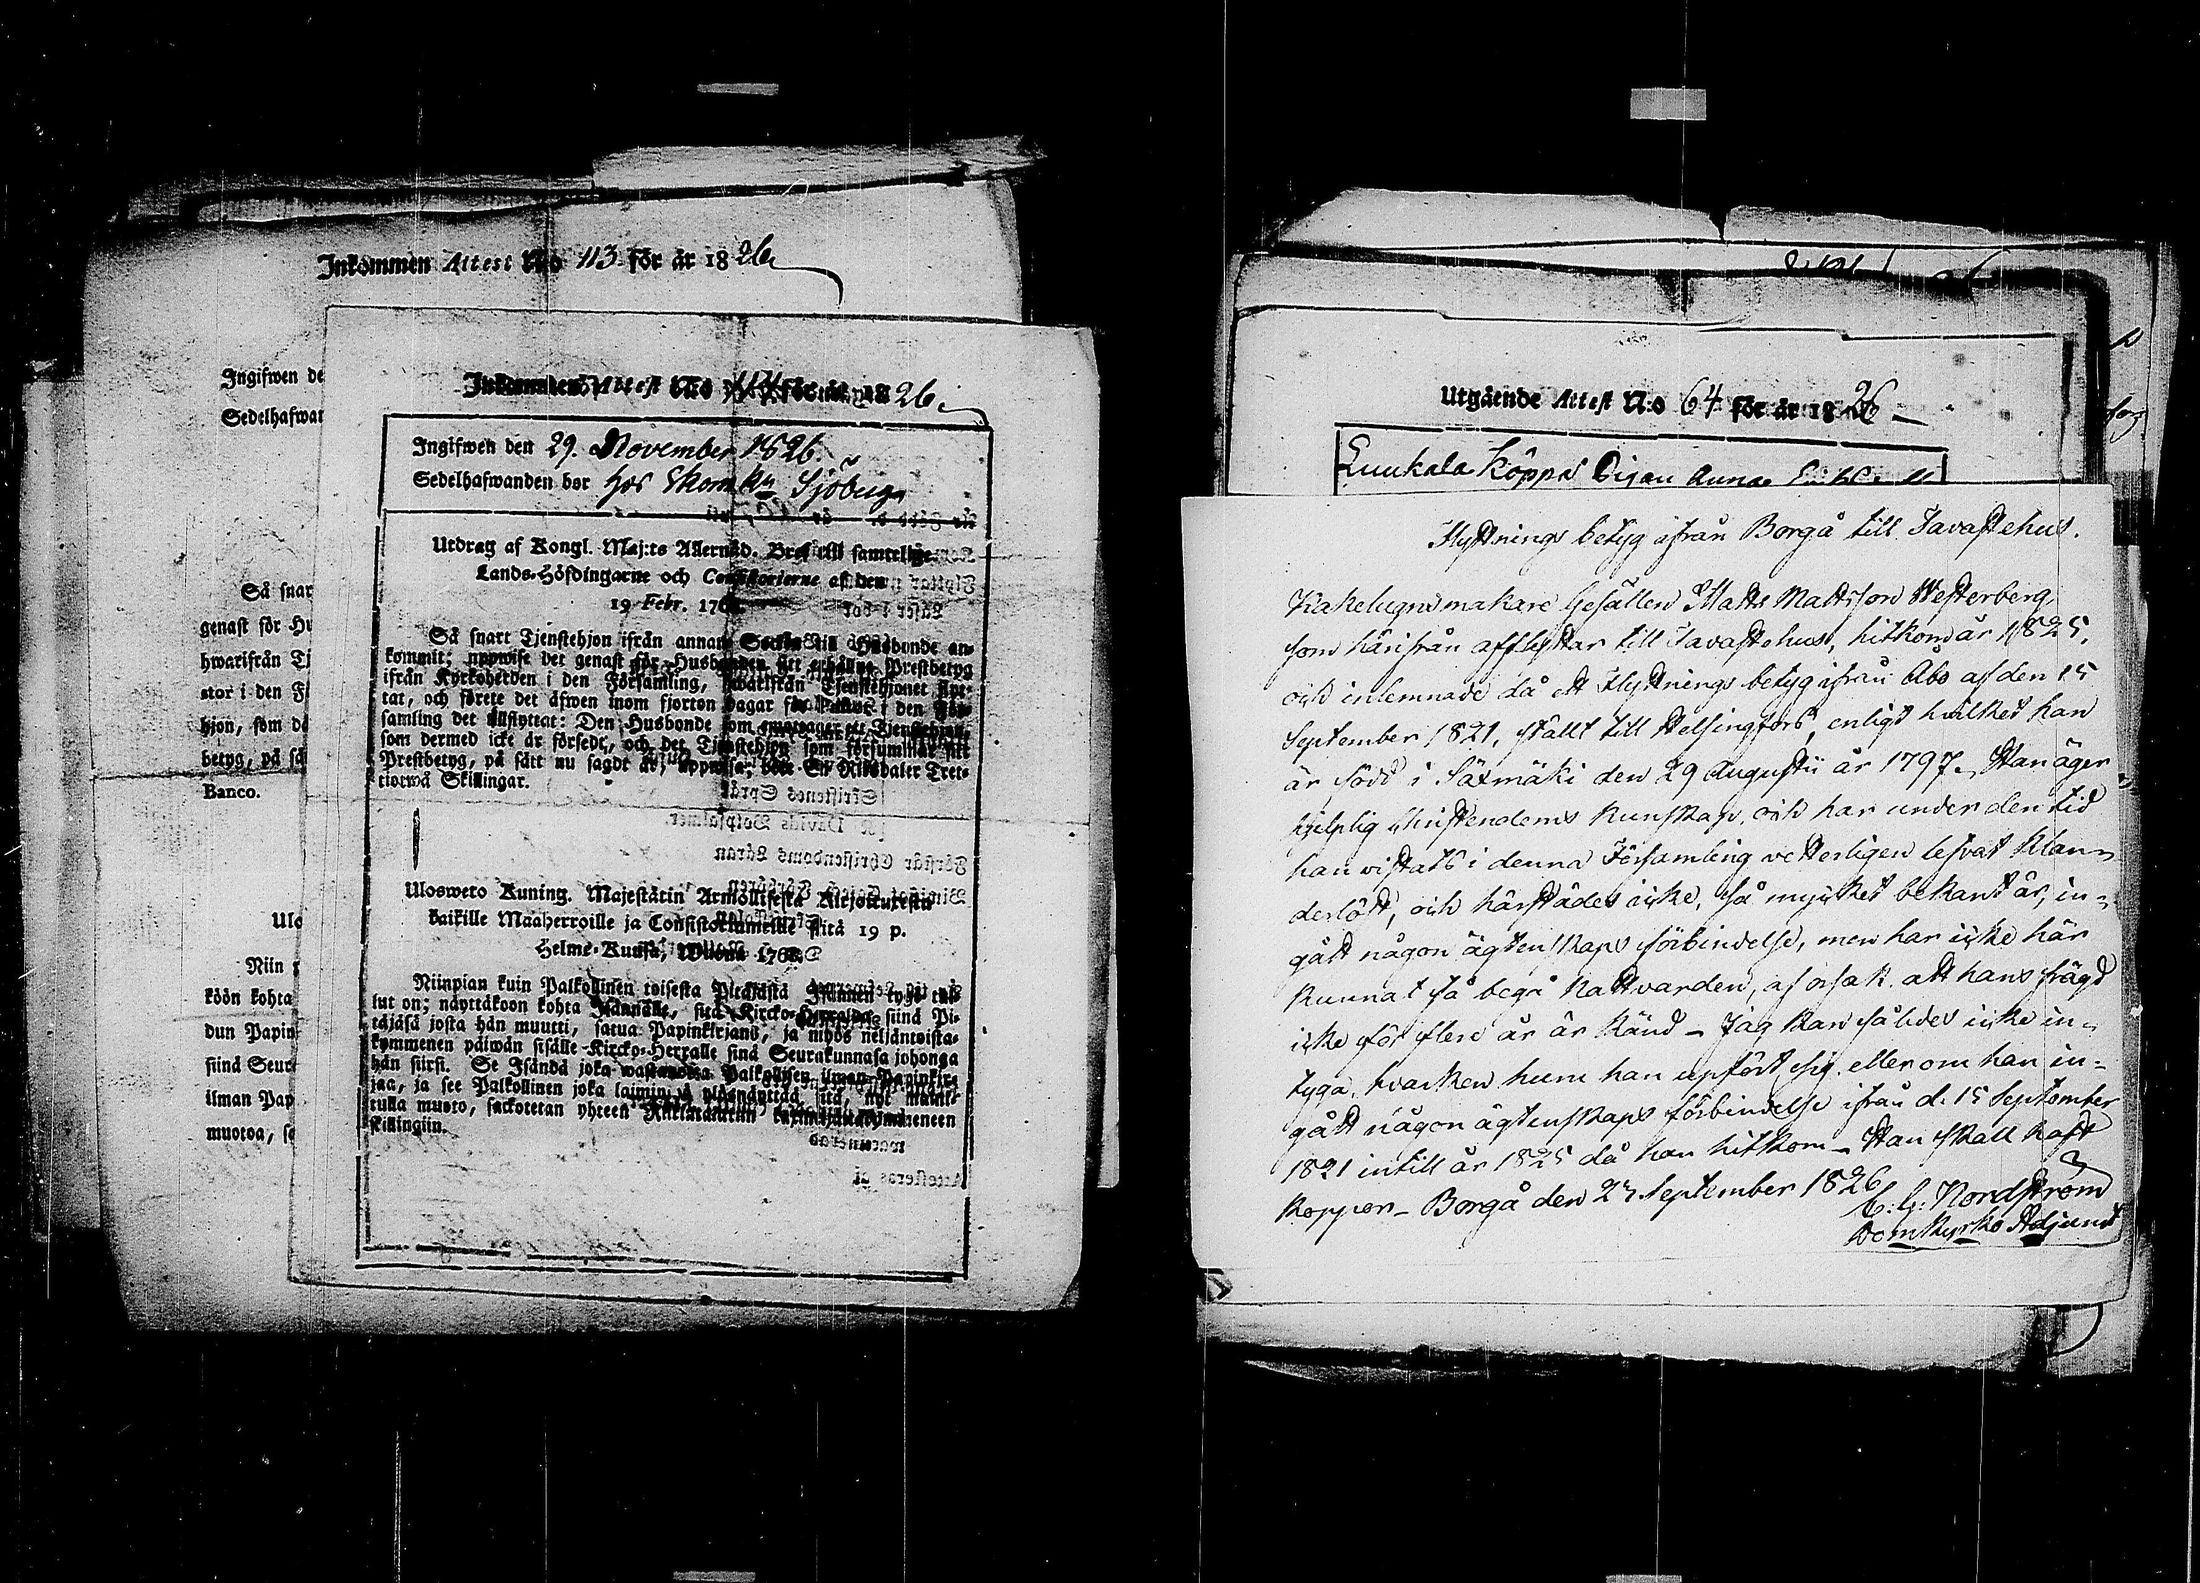 Inkommen Attest N:o 113 för år 1826
Ingifwen de
Sedelhafwan
Så snar
genast för Hu
hwarifrån Tj
stor i den F
hjon, som då
betyg, på sä
Banco.
Ulo
Niin
köön kohta
dun Papin
siinä Seur
ilman Pap
muotoa, sa
Attest N:o för år 1826.
Ingifwen den 29. November 1826.
Sedelhafwanden bor hos Skomkn Sjöberg
Utdrag af Kongl. Maj:ts Allernåd. Bref till samtelige
Lands-Höfdingarne och Consistorierne af den
19 Febr. 176
Så snart Tjenstehjon ifrån annan Socken till Husbonde an-
kommit; uppwise det genast för Husbonden sitt erhållne Prestbetyg
ifrån Kyrkoherden i den Församling, hwarifrån Tjenstehjonet flyt-
tat, och förete det äfwen inom fjorton dagar för Pastor i den För-
samling det tillflyttat: Den Husbonde som emottager ett Tjenstehjon,
som dermed icke är försedt, och det Tjenstehjon som försummar sitt
Prestbetyg, på sätt nu sagdt är, uppwisa, böte En Riksdaler Tret-
tiotwå Skillingar.
Ulosweto Kuning. Majestätin Armollisesta Kirjoituxesta
kaikille Maaherroille ja Consistoriumeille siitä 19 p.
Helme-Kuusa, Wuona 176
Niinpian kuin Palkollinen toisesta Pitäjästä Isännen tygö tul-
lut on; näyttäköön kohta Isännälle, sitä Kircko-Herralda siinä Pi-
täjäsä josta hän muutti, saatua Papinkirjand, ja myös neljäntoista-
kymmenen päiwän sisälle Kircko-Herralle siinä Seurakunnasa johonga
hän siirsi. Se Isändä joka wastanottaa Palkollisen ilman Papinkir-
jaa, ja see Palkollinen joka laimin ylösnäyttää sitä, nyt mainit-
tulla muoto, sackotetan yhteen Riikintalariin
killingiin.
Utgående Attest N:o 64 för år 1826
Luukala Köppä Pigan Anna
Flyttnings betyg ifrån Borgå till Tavastehus.
Kakelugnsmakare Gesällen Matts Mattsson Westerberg,
som härifrån afflyttar till Tavastehus, hitkom år 1825,
och inlemnade då ett Flyttnings betyg ifrån Åbo af den 15
September 1821, ställt till Helsingfors, enligt hvilket han
är född i Säxmäki den 29 Augustii år 1797. Han äger
hjelplig Christendoms Kunskap, och har under den tid
han vistats i denna Församling vetterligen lefvat Klan-
derlöst, och härstädes icke, så mycket bekant är, in-
gått någon ägtenskaps förbindelse, men har icke här
kunnat få begå Nattvarden, af orsak att hans frägd
icke för flere år är känd – Jag kan således icke in-
tyga, hvarken huru han upfört sig, eller om han in-
gått någon ägtenskaps förbindelse ifrån d. 15 September
1821 intill år 1825 då han hitkom – Han skall haft
Koppor – Borgå den 27. September 1826
C. G. Nordström
Domkyrko Adjunct